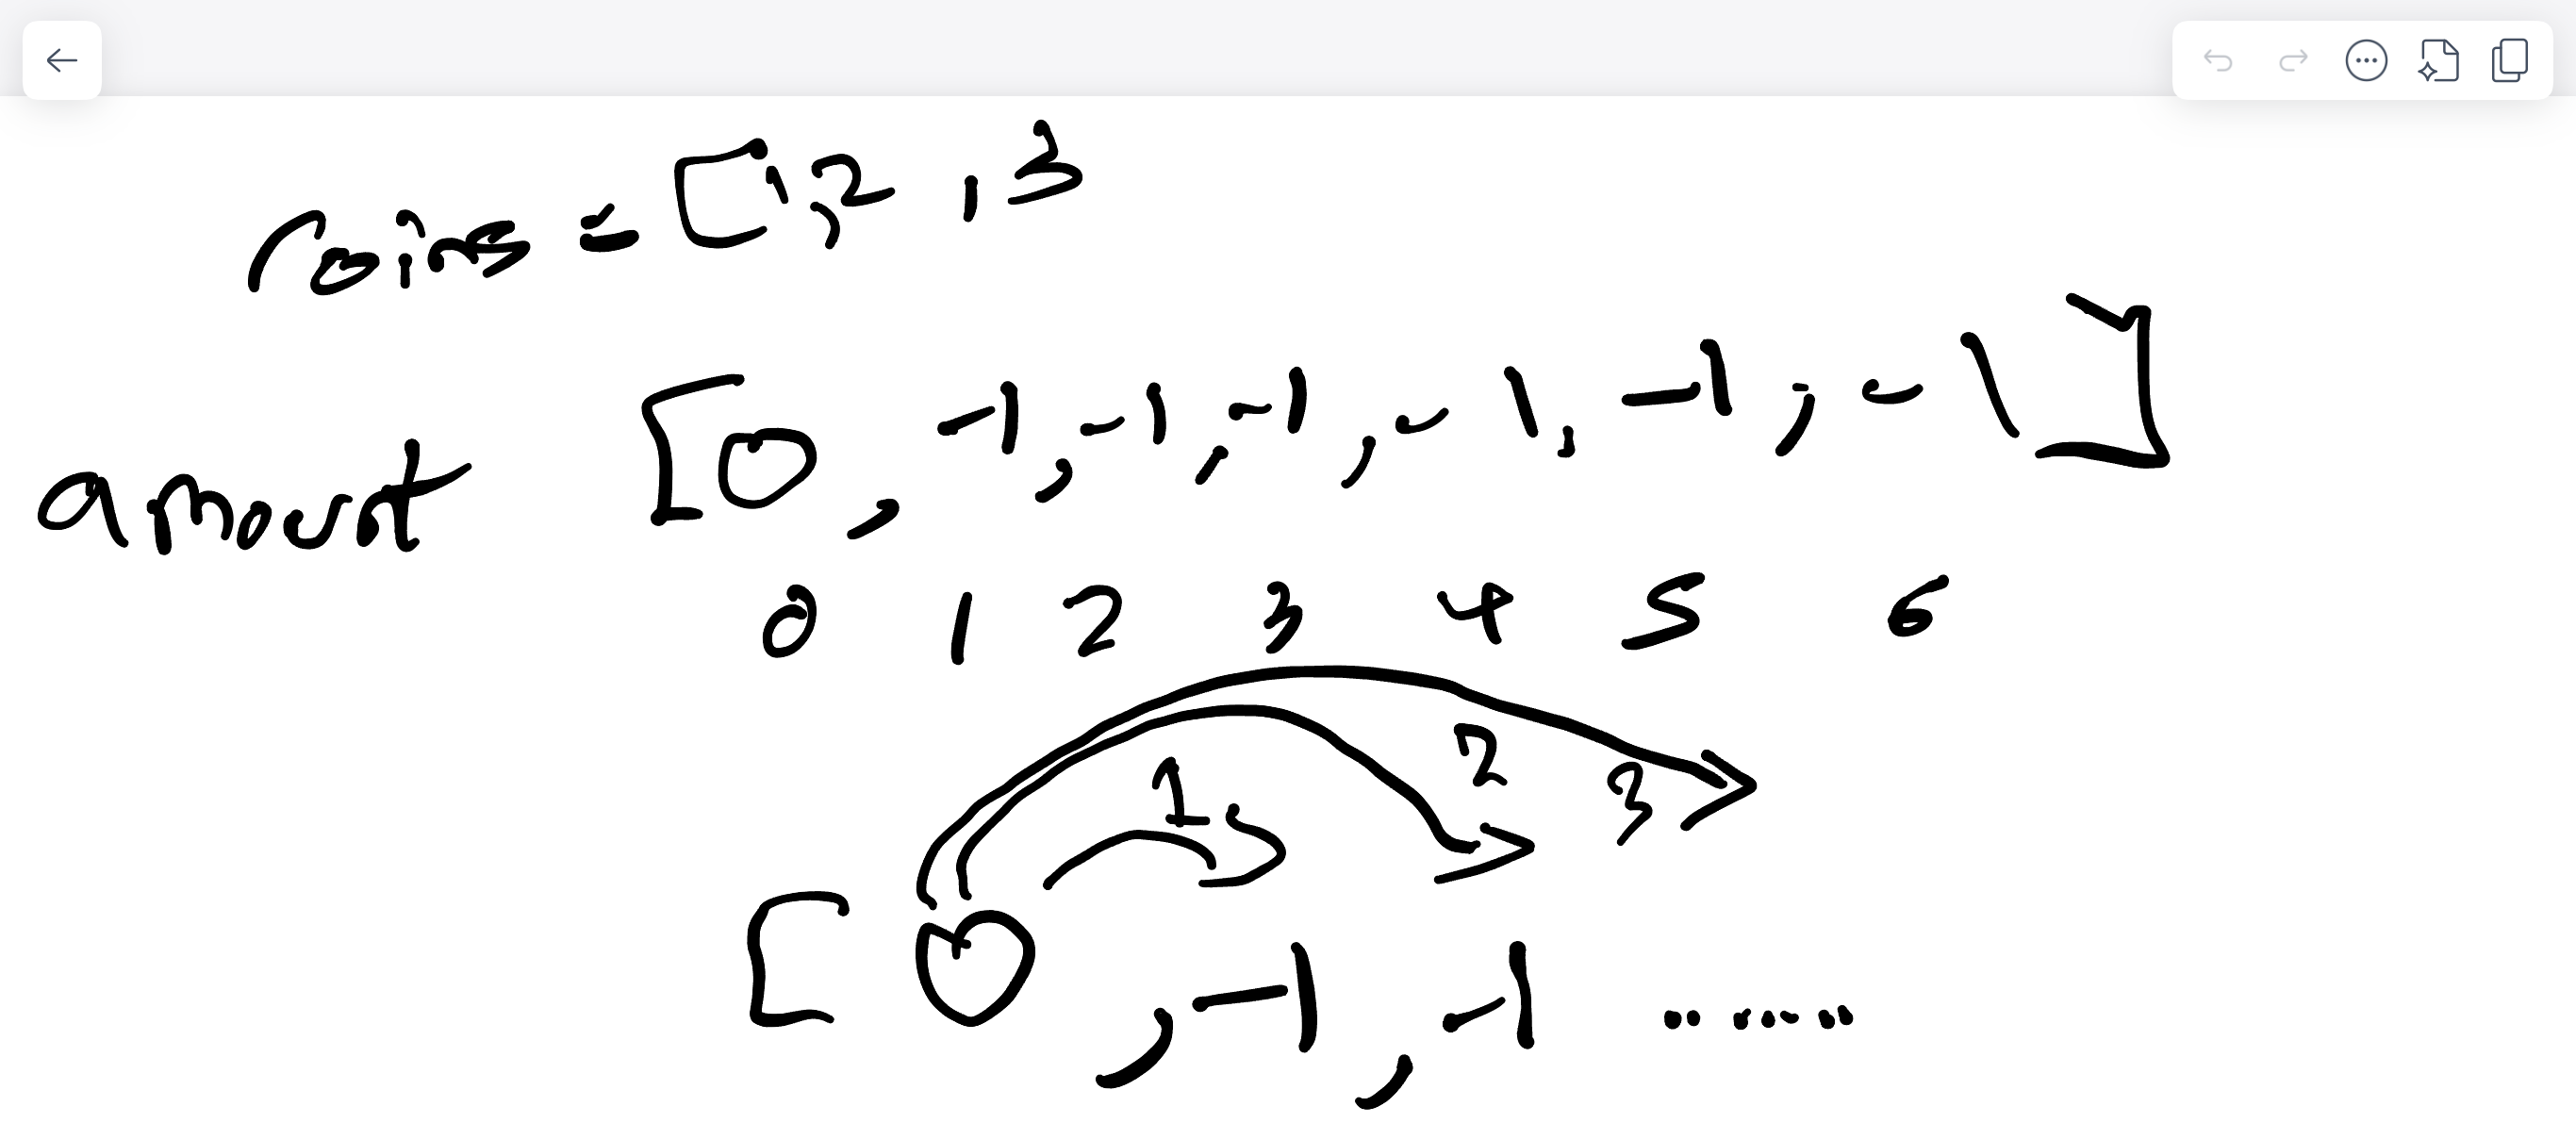 coins = [1,2,3
amount [0,-1,-1,-1,-1,-1,-1]
0 1 2 3 4 5 6
1 2 3
[0,-1,-1 .......